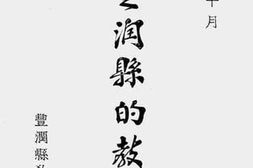 十月
润縣的教
豐潤縣